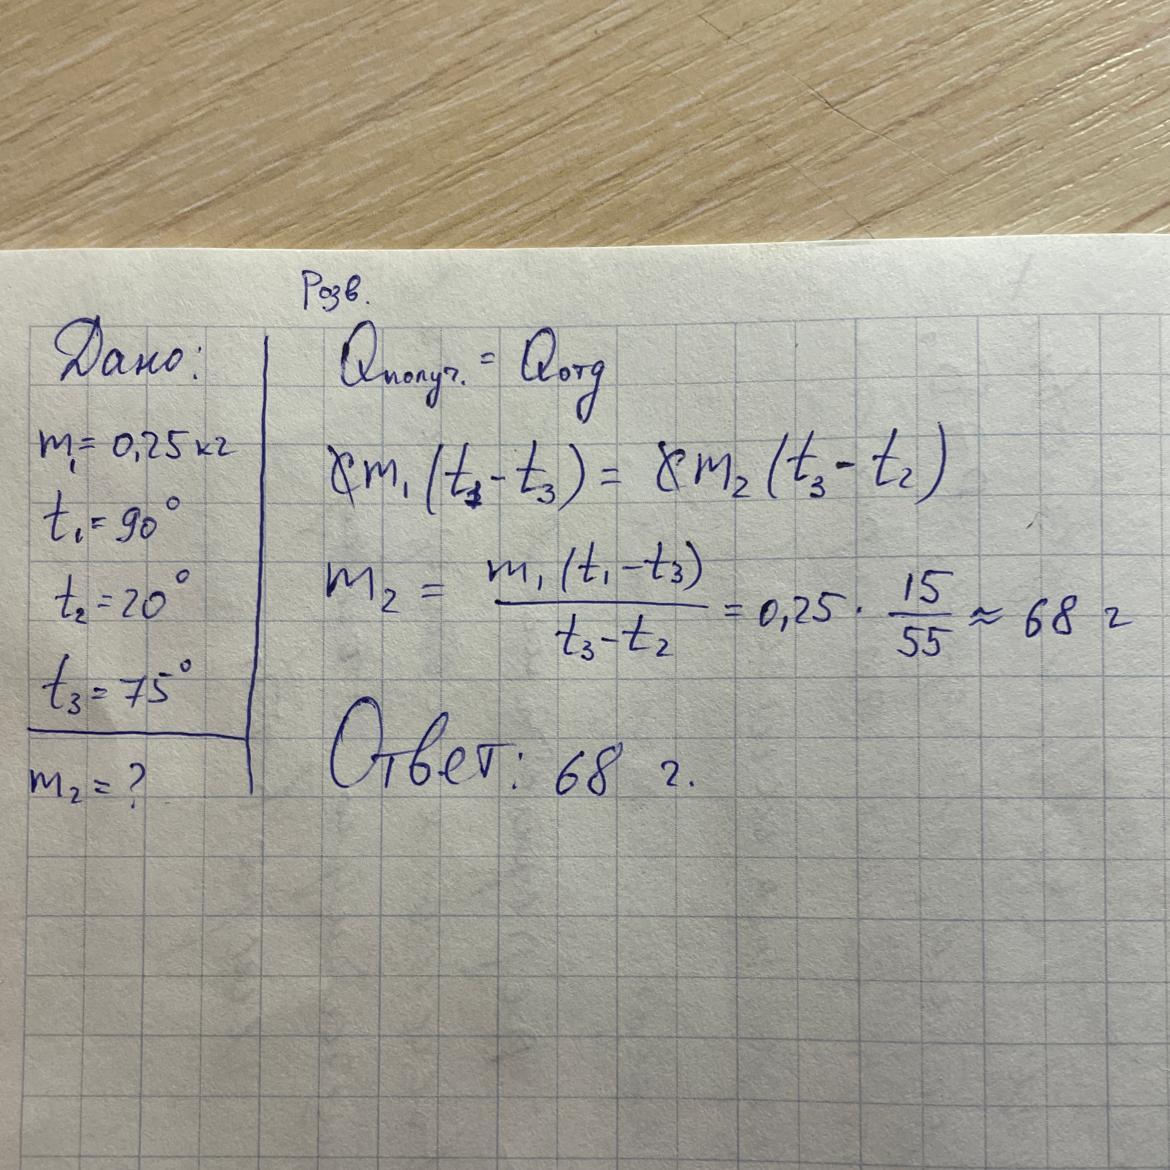 Розв.
Дано:
m₁ = 0,25 кг
t₁ = 90°
t₂ = 20°
t₃ = 75°
m₂ = ?
Qполуч. = Qотд
cm₁(t₁ - t₃) = cm₂(t₃ - t₂)
m₂ = m₁(t₁ - t₃) / t₃ - t₂ = 0,25 · 15/55 ≈ 68 г
Ответ: 68 г.